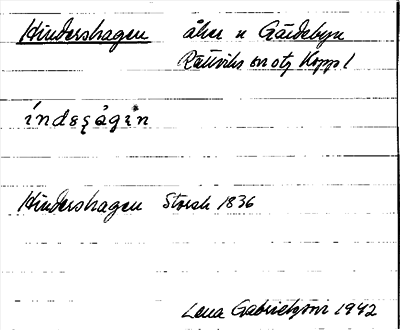 Hindershagen åker n Gärdebyn
Rättviks sn otj Kopp l
índeʂàgɛn
Hindershagen Storsk 1836
Lena Gabrielsson 1942